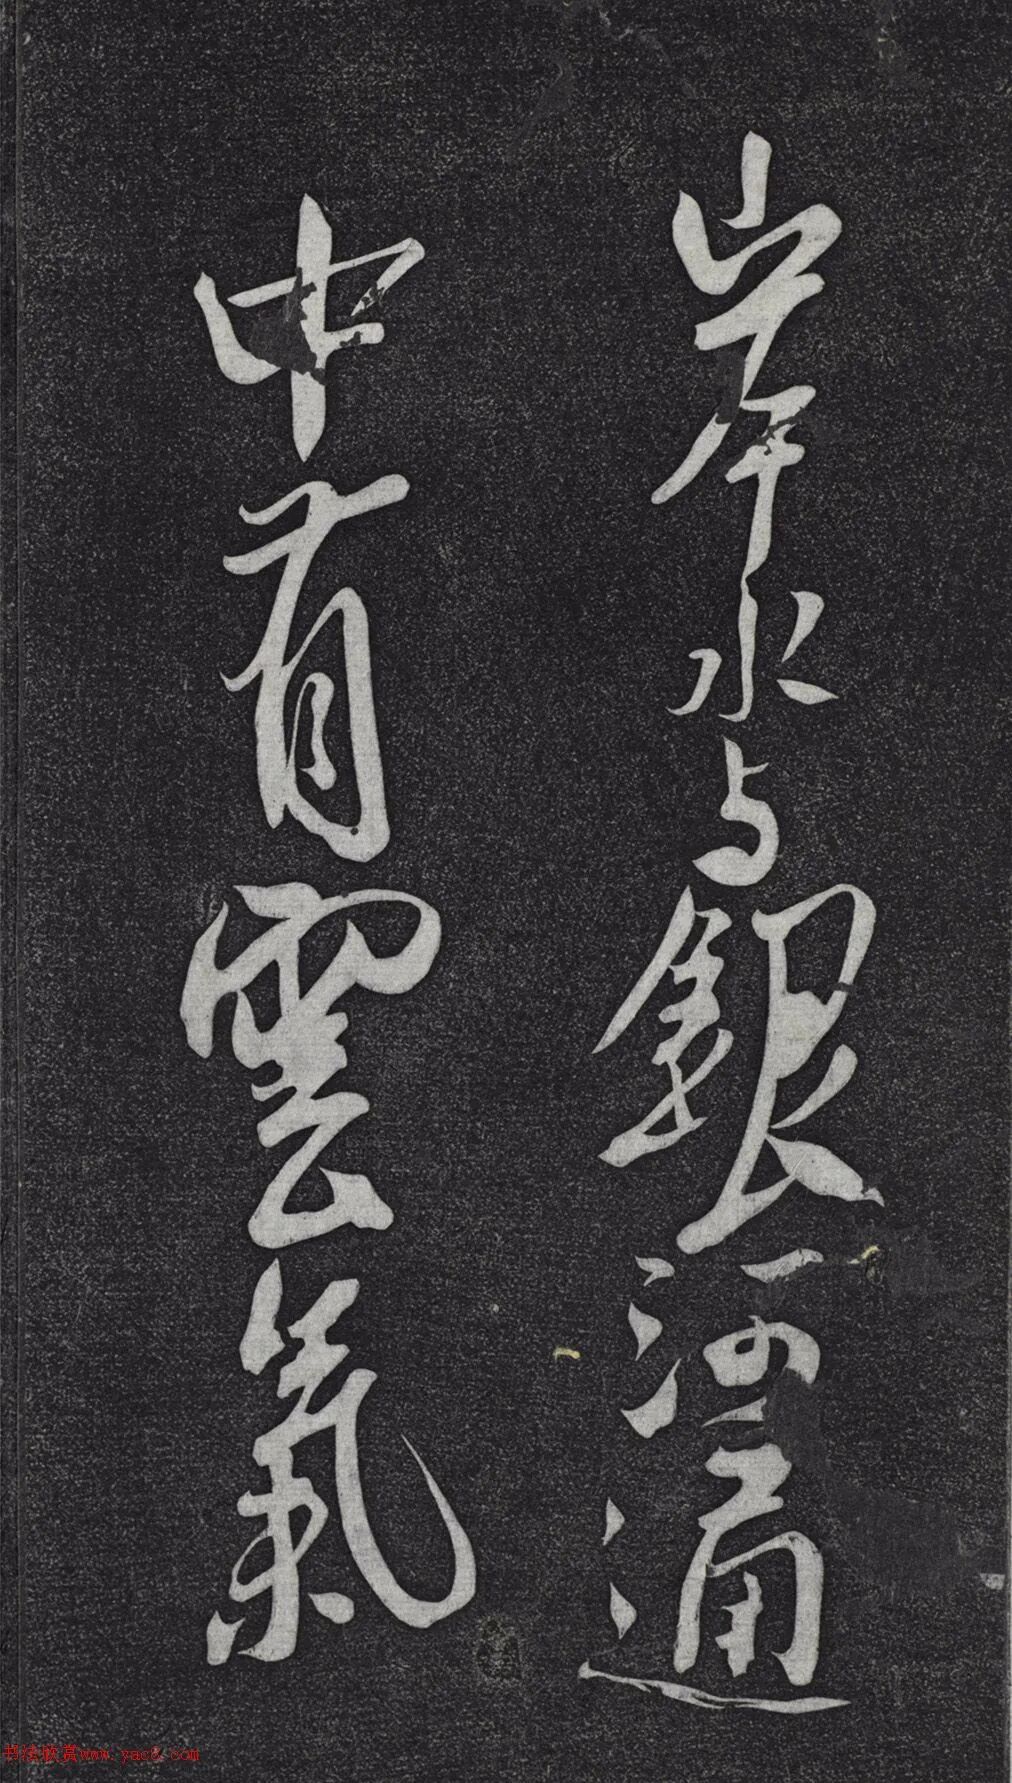 岸水与銀河通
中有雲氣
书法欣赏www.yac8.com